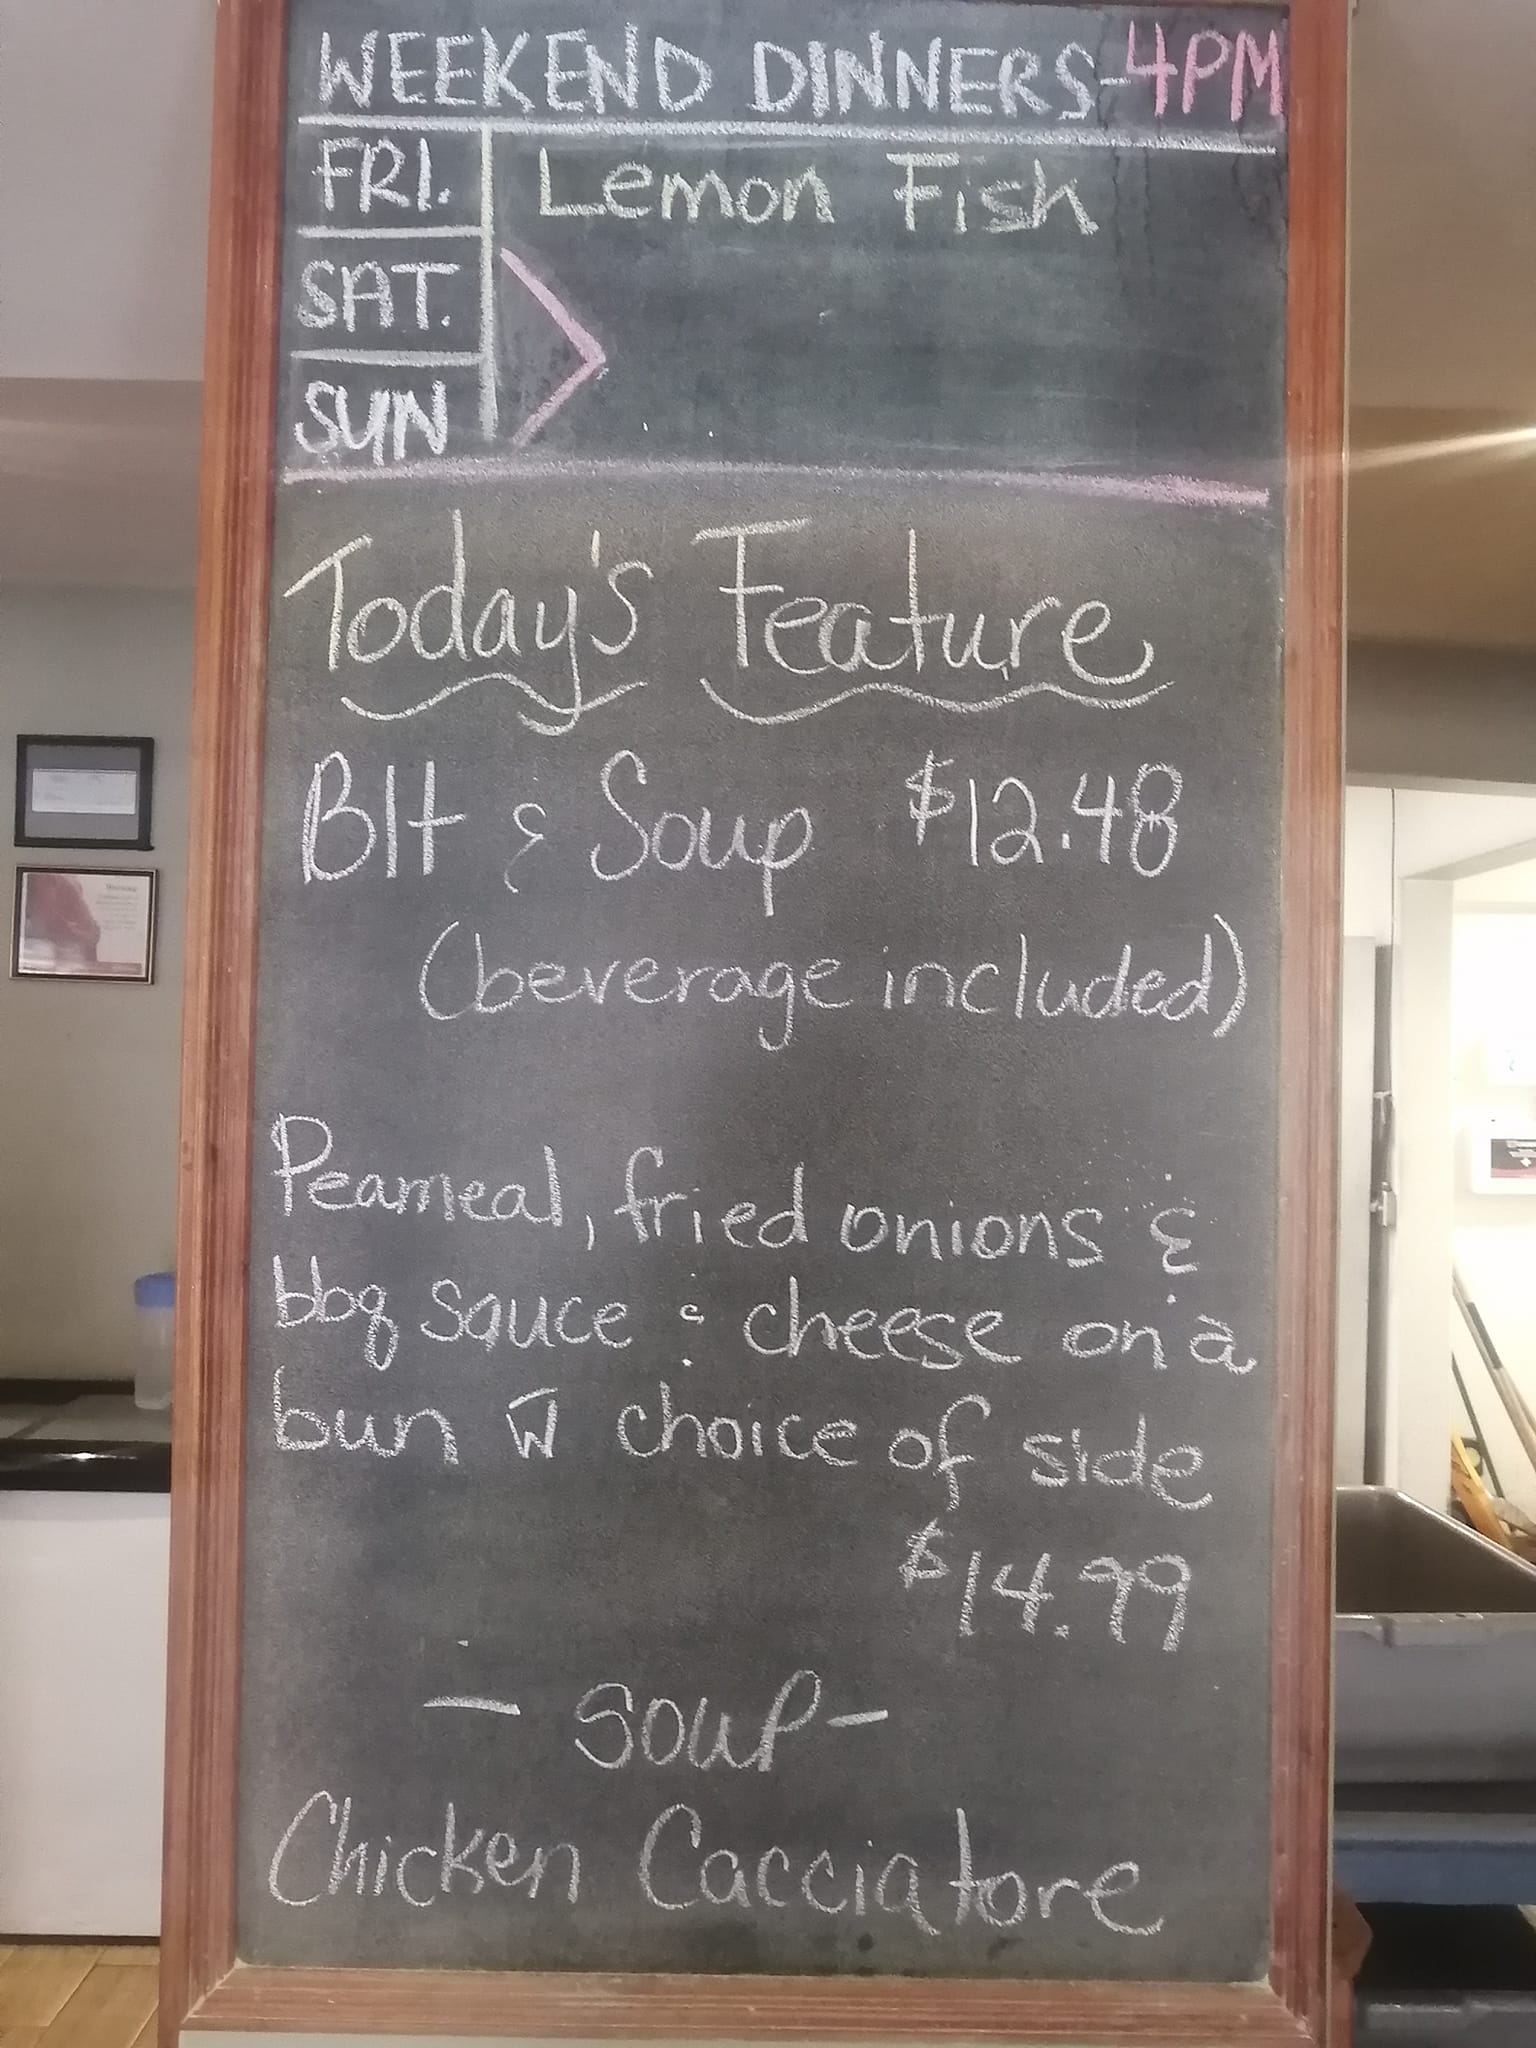 WEEKEND DINNERS-4PM
FRI. Lemon Fish
SAT.
SUN
Today's Feature
Blt & Soup $12.48
(beverage included)
Peameal, fried onions &
bbq sauce & cheese on a
bun w choice of side
$14.99
- soup -
Chicken Cacciatore